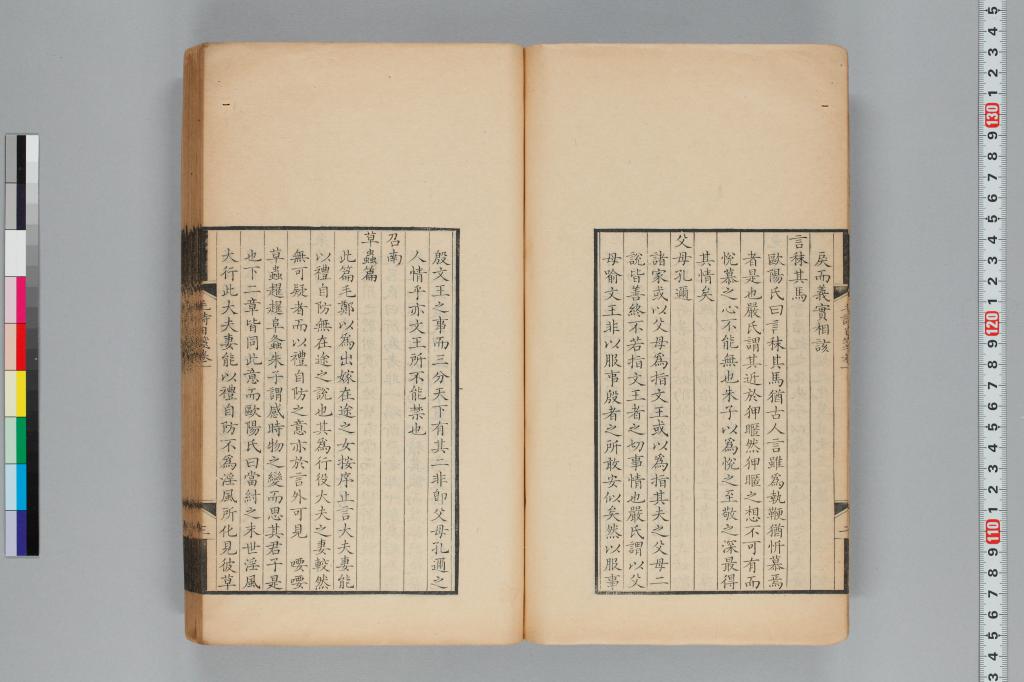 戾而義實相該
言秣其馬
歐陽氏曰言秣其馬猶古人言雖為執鞭猶忻慕焉
者是也嚴氏謂其近於狎暱然狎暱之想不可有而
悅慕之心不能無也朱子以為悅之至敬之深最得
其情矣
父母孔邇
諸家或以父母為指文王或以為指其夫之父母二
說皆善終不若指文王者之切事情也嚴氏謂以父
母喻文王非以服事殷者之所敢安似矣然以服事
殷文王之事而三分天下有其二非卽父母孔邇之
人情乎亦文王所不能禁也
召南
草蟲篇
此篇毛鄭以為出嫁在途之女按序止言大夫妻能
以禮自防無在途之說也其為行役大夫之妻較然
無可疑者而以禮自防之意亦於言外可見 喓喓
草蟲趯趯阜螽朱子謂感時物之變而思其君子是
也下二章皆同此意而歐陽氏曰當紂之末世淫風
大行此大夫妻能以禮自防不為淫風所化見彼草